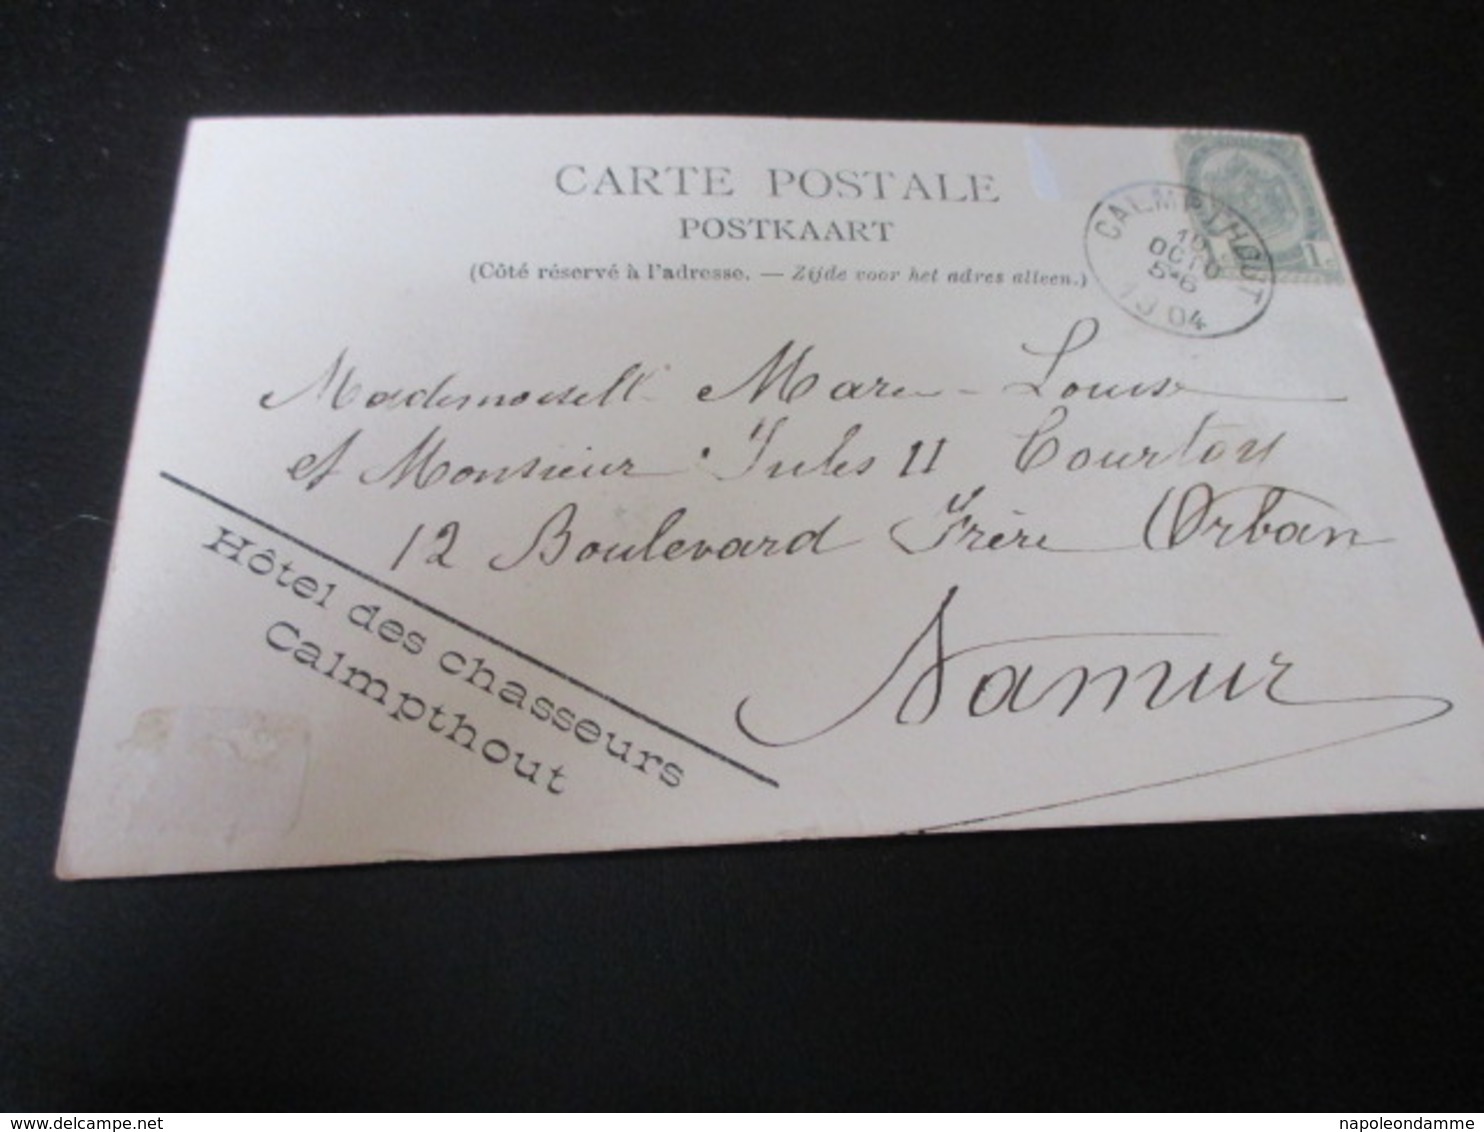 CARTE POSTALE
POSTKAART
(Côté réservé à l'adresse. — Zijde voor het adres alleen.)
CALMPTHOUT
10
OCTO
5-6
1904
1c.
Mademoiselle Marie-Louise
et Monsieur Jules Courtoy
12 Boulevard Frère Orban
Namur
Hôtel des chasseurs
Calmpthout
napoleondamme